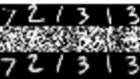 721313
721313